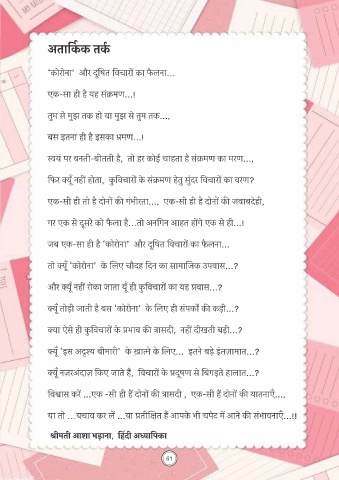 अतार्किक तर्क
'कोरोना' और दूषित विचारों का फैलना...
एक-सा ही है यह संक्रमण...!
तुम से मुझ तक हो या मुझ से तुम तक...,
बस इतना ही है इसका भ्रमण...!
स्वयं पर बनती-बीतती है, तो हर कोई चाहता है संक्रमण का मरण...,
फिर क्यूँ नहीं होता, कुविचारों के संक्रमण हेतु सुंदर विचारों का वरण?
एक-सी ही तो है दोनों की गंभीरता..., एक-सी ही है दोनों की जवाबदेही,
गर एक से दूसरे को फैला है...तो अनगिन आहत होंगे एक से ही...!
जब एक-सा ही है 'कोरोना' और दूषित विचारों का फैलना...
तो क्यूँ 'कोरोना' के लिए चौदह दिन का सामाजिक उपवास...?
और क्यूँ नहीं रोका जाता यूँ ही कुविचारों का यह प्रवास...?
क्यूँ तोड़ी जाती है बस 'कोरोना' के लिए ही संपर्कों की कड़ी...?
क्या ऐसे ही कुविचारों के प्रभाव की त्रासदी, नहीं दीखती बड़ी...?
क्यूँ 'इस अदृश्य बीमारी' के ख़ात्मे के लिए... इतने बड़े इंतज़ामात...?
क्यूँ नज़रअंदाज़ किए जाते हैं, विचारों के प्रदूषण से बिगड़ते हालात...?
विश्वास करें ...एक -सी ही हैं दोनों की त्रासदी , एक-सी हैं दोनों की यातनाएँ...,
या तो ...बचाव कर लें ...या प्रतीक्षित हैं आपके भी चपेट में आने की संभावनाएँ...!!
श्रीमती आशा भड़ाना, हिंदी अध्यापिका
61